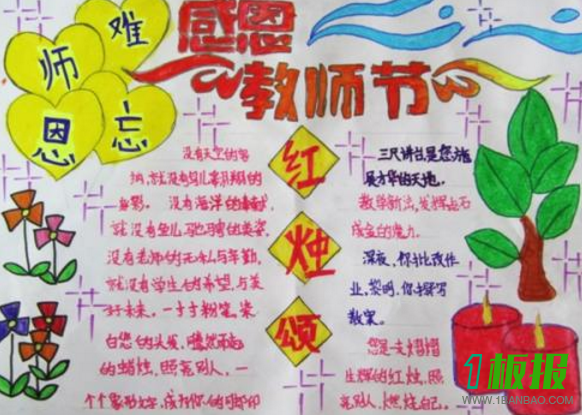 感恩
教师节
师恩难忘
红烛颂
没有天空的
就没有海洋的
没有老师的无私与辛勤,
就没有学生的希望,与美
好未来。一寸寸粉笔,染
白您的头发,
的蜡烛,照亮别人,一
个个
三尺讲台是您施
展才华的天地。
教学新法,发挥点石
成金的魔力。
深夜,你批改作
业,黎明,你撰写
教案。
您是一支
生辉的红烛,照
亮别人,燃烧自己。
1板报
WWW.1BANBAO.COM